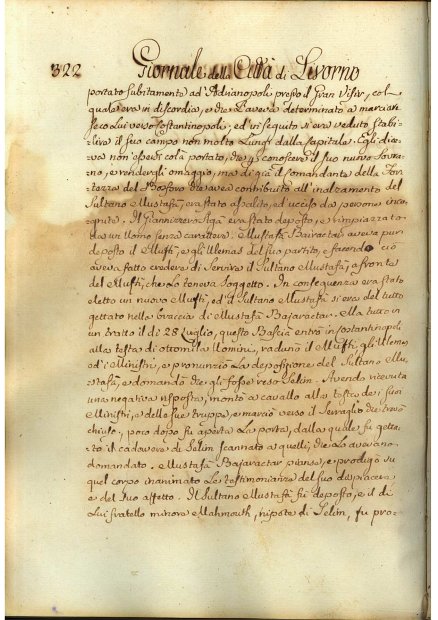 322 Giornale della Città di Livorno
portato subitamente ad Adrianopoli presso il Gran Visir, col
quale era in discordia, e che l'aveva determinato a marciar
seco lui verso Costantinopoli, ed in seguito si era veduto stabi-
lire il suo campo non molto lungi dalla Capitale. Egli dice-
va non essersi colà portato, che conoscere il suo nuovo Sovra-
no, e rendergli omaggio, ma di già il Comandante della For-
tezza del Bosforo che aveva contribuito all'inalzamento del
Sultano Mustafà, era stato assalito, ed ucciso da persone inco-
gnite. Il Giannizzero Agà era stato deposto, e rimpiazzato
da un Uomo senza carattere. Mustafà Bairactar aveva pur
deposto il Muftì, e gli Ulemas del suo partito, e facendo ciò
aveva fatto credere di servire il Sultano Mustafà, a fronte
del Muftì, che lo teneva soggetto. In conseguenza era stato
eletto un nuovo Muftì, ed il Sultano Mustafà si era del tutto
gettato nella braccia di Mustafà Bajaractar. Ma tutto in
un tratto il dì 28 Luglio, questo Bascià entrò in Costantinopoli
alla testa di ottomila Uomini, radunò il Muftì, gli Ulemas
ed i Ministri, e pronunziò la deposizione del Sultano Mu-
stafà, e domandò che gli fosse reso Selim. Avendo ricevuta
una negativa risposta, montò a cavallo alla testa de' suoi
Ministri, e delle sue truppe, e marciò verso il Serraglio che trovò
chiuso, poco dopo fu aperta la porta, dalla quale fu getta-
to il cadavere di Selim scannato a quelli, che lo avevano
domandato. Mustafà Bajaractar pianse, e prodigò su
quel corpo inanimato le testimonianze del suo dispiacere,
e del suo affetto. Il Sultano Mustafà fu deposto, e il di
lui fratello minore Mahmouth, nipote di Selim, fu pro-